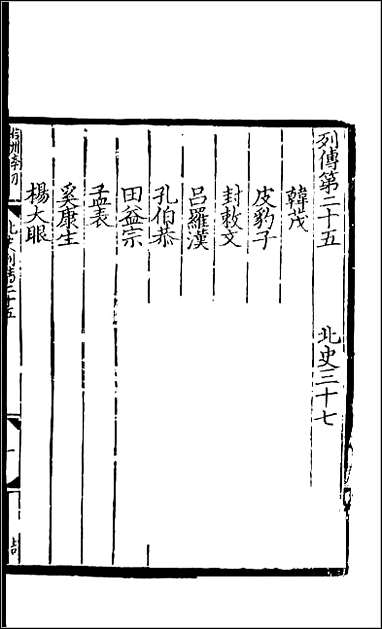 列傳第二十五　　　北史三十七
韓茂
皮豹子
封敕文
呂羅漢
孔伯恭
田益宗
孟表
奚康生
楊大眼
北史列傳二十五